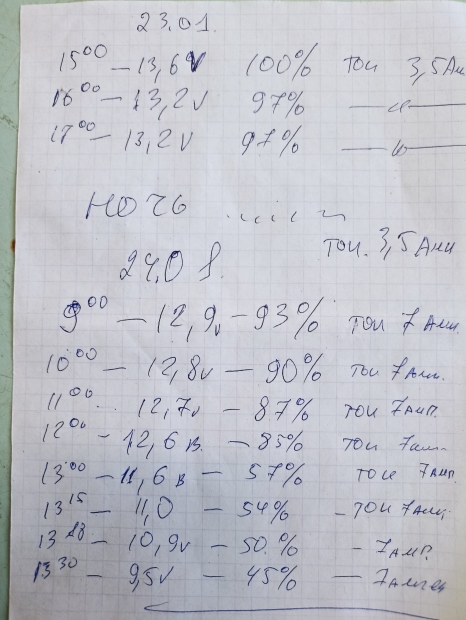 23.01.
15⁰⁰ – 13,6V 100% ток 3,5Ам
16⁰⁰ – 13,2v 97% —〃—
17⁰⁰ – 13,2v 97% —〃—
ночь ........
ток. 3,5Амп
24.01.
9⁰⁰ – 12,9v – 93% ток 7Амп.
10⁰⁰ – 12,8v – 90% ток 7Амп.
11⁰⁰ .. 12,7v – 87% ток 7амп.
12⁰⁰ – 12,6в. – 85% ток 7амп.
13⁰⁰ – 11,6в – 57% ток 7амп.
13¹⁵ – 11,0 – 54% – ток 7Амп
13¹⁸ – 10,9v – 50.% – 7амп.
13³⁰ – 9,5v – 45% – 7ампер